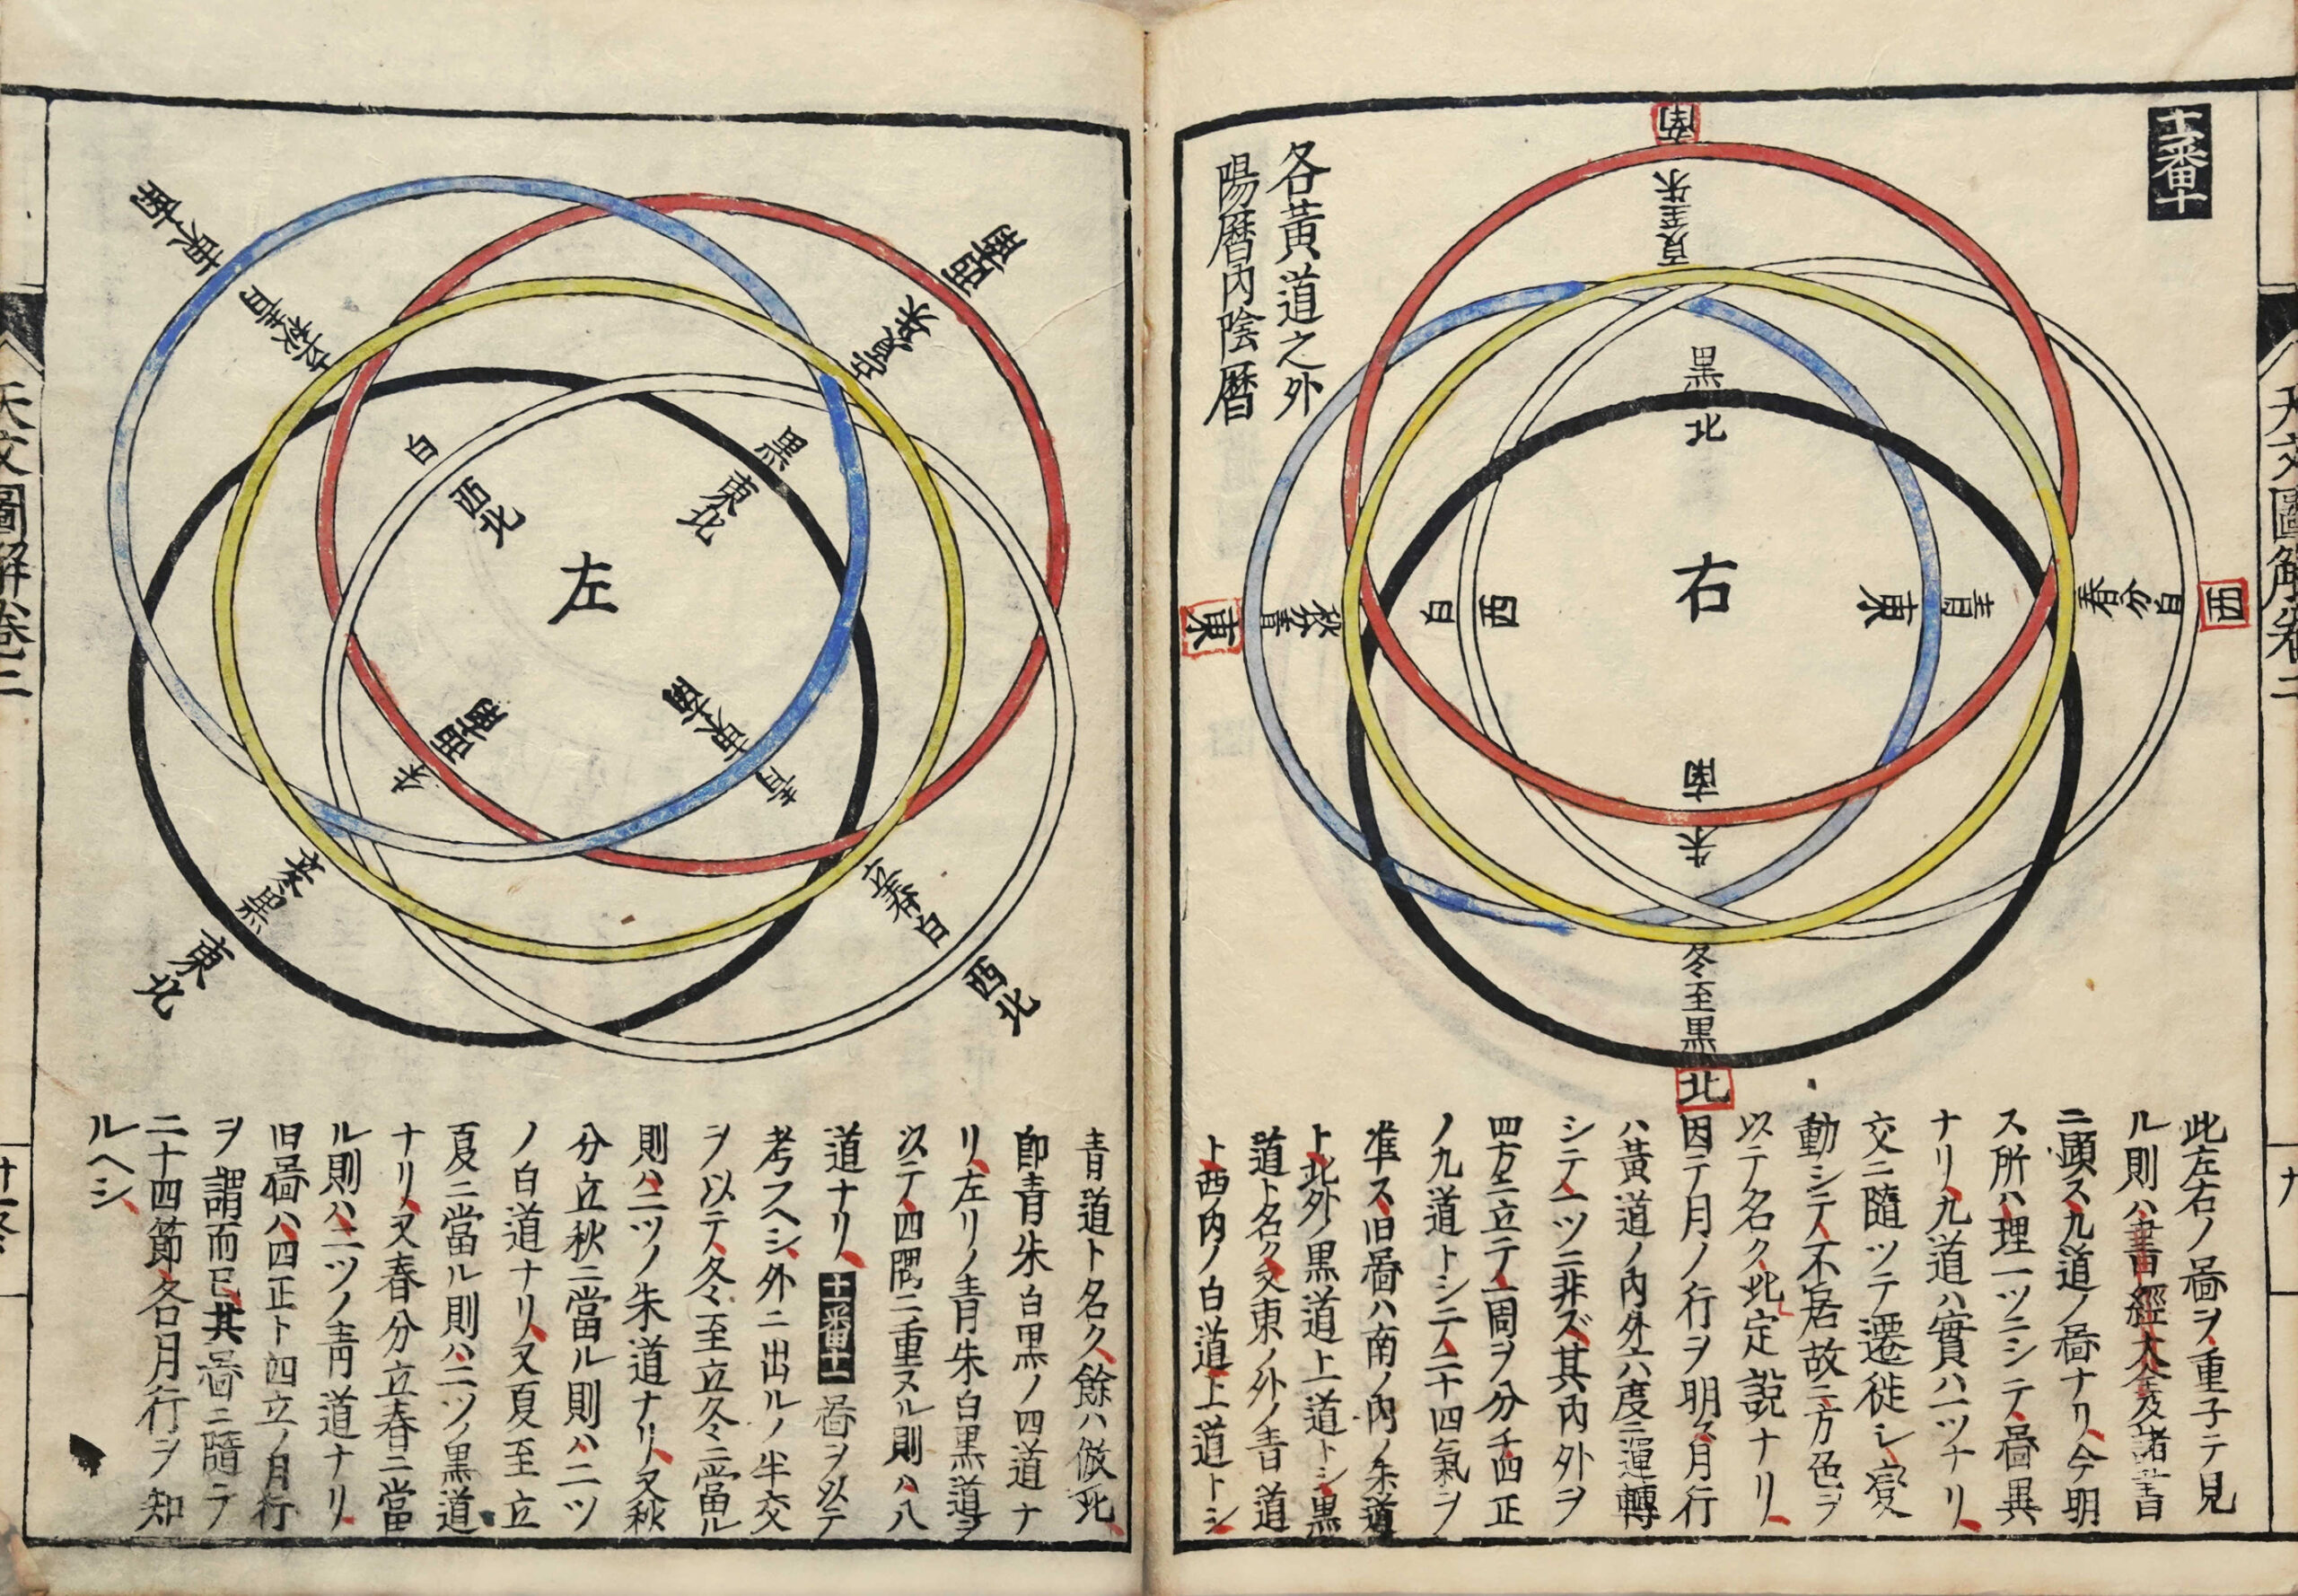 十二番
各黃道之外
陽曆內陰曆
南
夏至朱
黒
北
東
秋分青
白
西
右
東
青
春分白
西
南
朱
冬至黒
北
此左右ノ啚ヲ重子テ見
ル則ハ書經大全及諸書
ニ顕ス九道ノ啚ナリ今明
ス所ハ理一ツニシテ啚異
ナリ九道ハ實ハ一ツナリ
交ニ隨ツテ遷徙シ変
動シテ不居故ニ方色ヲ
以テ名ク此定說ナリ
因テ月ノ行ヲ明ス月行
ハ黃道ノ内外六度ニ運轉
シテ一ツニ非ズ其内外ヲ
四方ニ立テ一周ヲ分チ四正
ノ九道トシニテ二十四氣ヲ
准ス旧啚ハ南ノ内ノ朱道
ト北外ノ黒道上道トシ黒
道ト名ク又東ノ外ノ青道
ト西ノ内ノ白道上道トシ
天文圖解卷二
東南
西南
青
朱
白
西北
黒
東北
左
西南
朱
東南
青
黒
東北
立春白
西北
青道ト名ク餘ハ倣此
即青朱白黒ノ四道ナ
リ左リノ青朱白黒道ヲ
以テ四隅ニ重ヌル則ハ八
道ナリ十番十一啚ヲ以テ
考フヘシ外ニ出ルノ半交
ヲ以テ冬至立冬ニ當ル
則ハ二ツノ朱道ナリ又秋
分立秋ニ當ル則ハ二ツ
ノ白道ナリ又夏至立
夏ニ當ル則ハ二ツノ黒道
ナリ又春分立春ニ當
ル則ハ二ツノ青道ナリ
旧啚ハ四正ト四立ノ月行
ヲ謂而已其啚ニ隨テ
二十四節各月行ヲ知
ルヘシ
天文圖解卷二